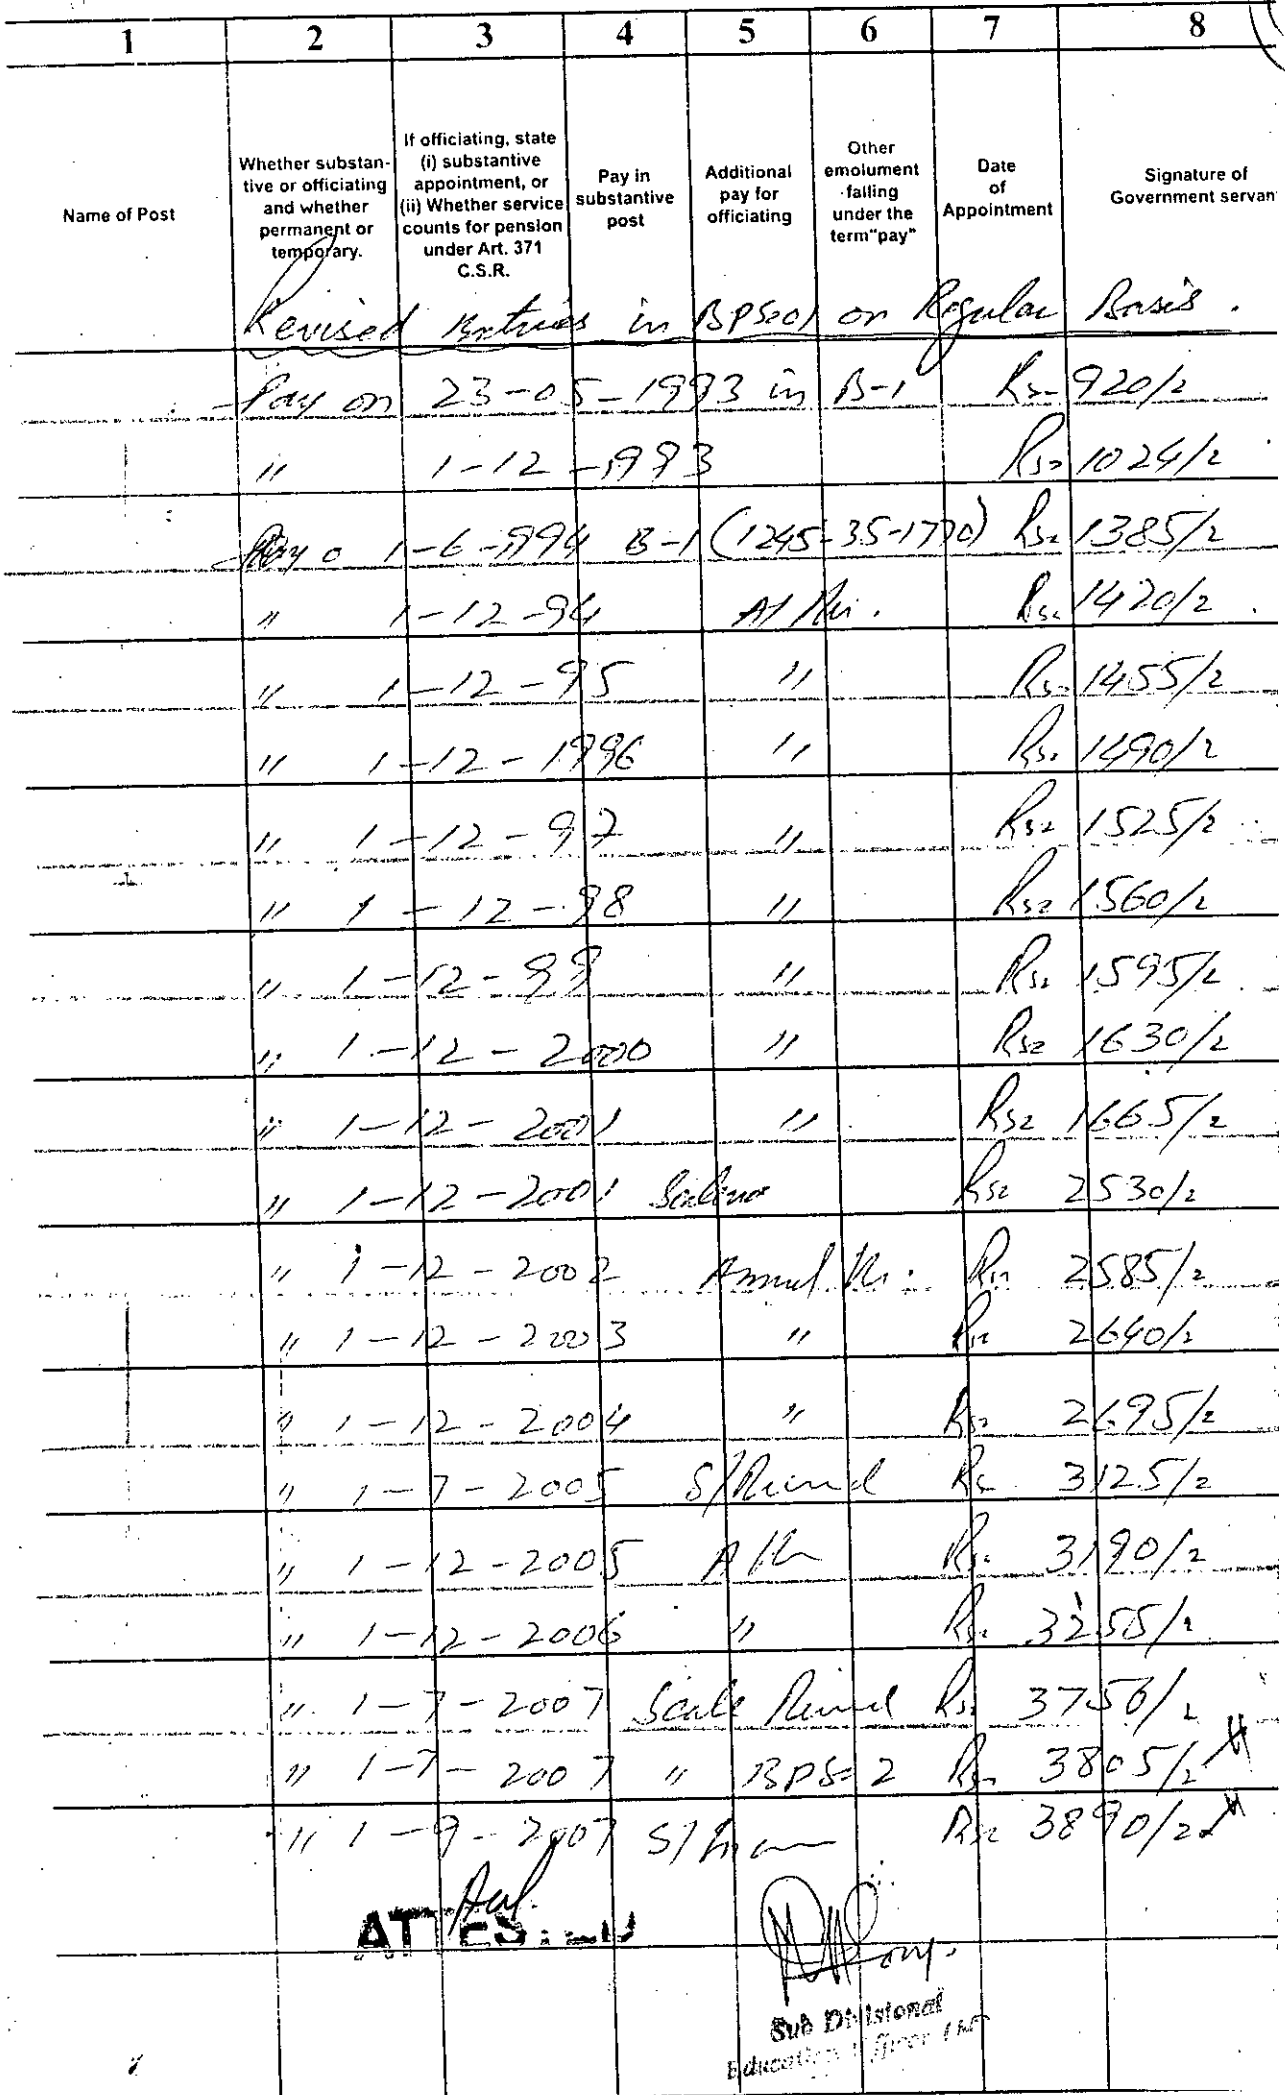 1 2 3 4 5 6 7 8
Name of Post
Whether substan-
tive or officiating
and whether
permanent or
temporary.
If officiating, state
(i) substantive
appointment, or
(ii) Whether service
counts for pension
under Art. 371
C.S.R.
Pay in
substantive
post
Additional
pay for
officiating
Other
emolument
falling
under the
term"pay"
Date
of
Appointment
Signature of
Government servan
Revised Entries in BPS-01 on Regular Basis.
Pay on 23-05-1993 in B-1 Rs= 920/=
" 1-12-1993 Rs= 1024/=
Pay o 1-6-1994 B-1 (1245-35-1770) Rs= 1385/=
" 1-12-94 Rs= 1420/=
" 1-12-95 " Rs= 1455/=
" 1-12-1996 " Rs= 1490/=
" 1-12-97 " Rs= 1525/=
" 1-12-98 " Rs= 1560/=
" 1-12-99 " Rs= 1595/=
" 1-12-2000 " Rs= 1630/=
" 1-12-2001 " Rs= 1665/=
" 1-12-2001 Rs= 2530/=
" 1-12-2002 Rs= 2585/=
" 1-12-2003 " Rs= 2640/=
" 1-12-2004 " Rs= 2695/=
" 1-7-2005 Rs 3125/=
" 1-12-2005 Rs= 3190/=
" 1-12-2006 " Rs= 3255/=
" 1-7-2007 Scale Rs= 3750/=
" 1-7-2007 " BPS=2 Rs= 3805/=
" 1-9-2007 Rs= 3890/=
ATTESTED
Sub Divisional
Education Officer